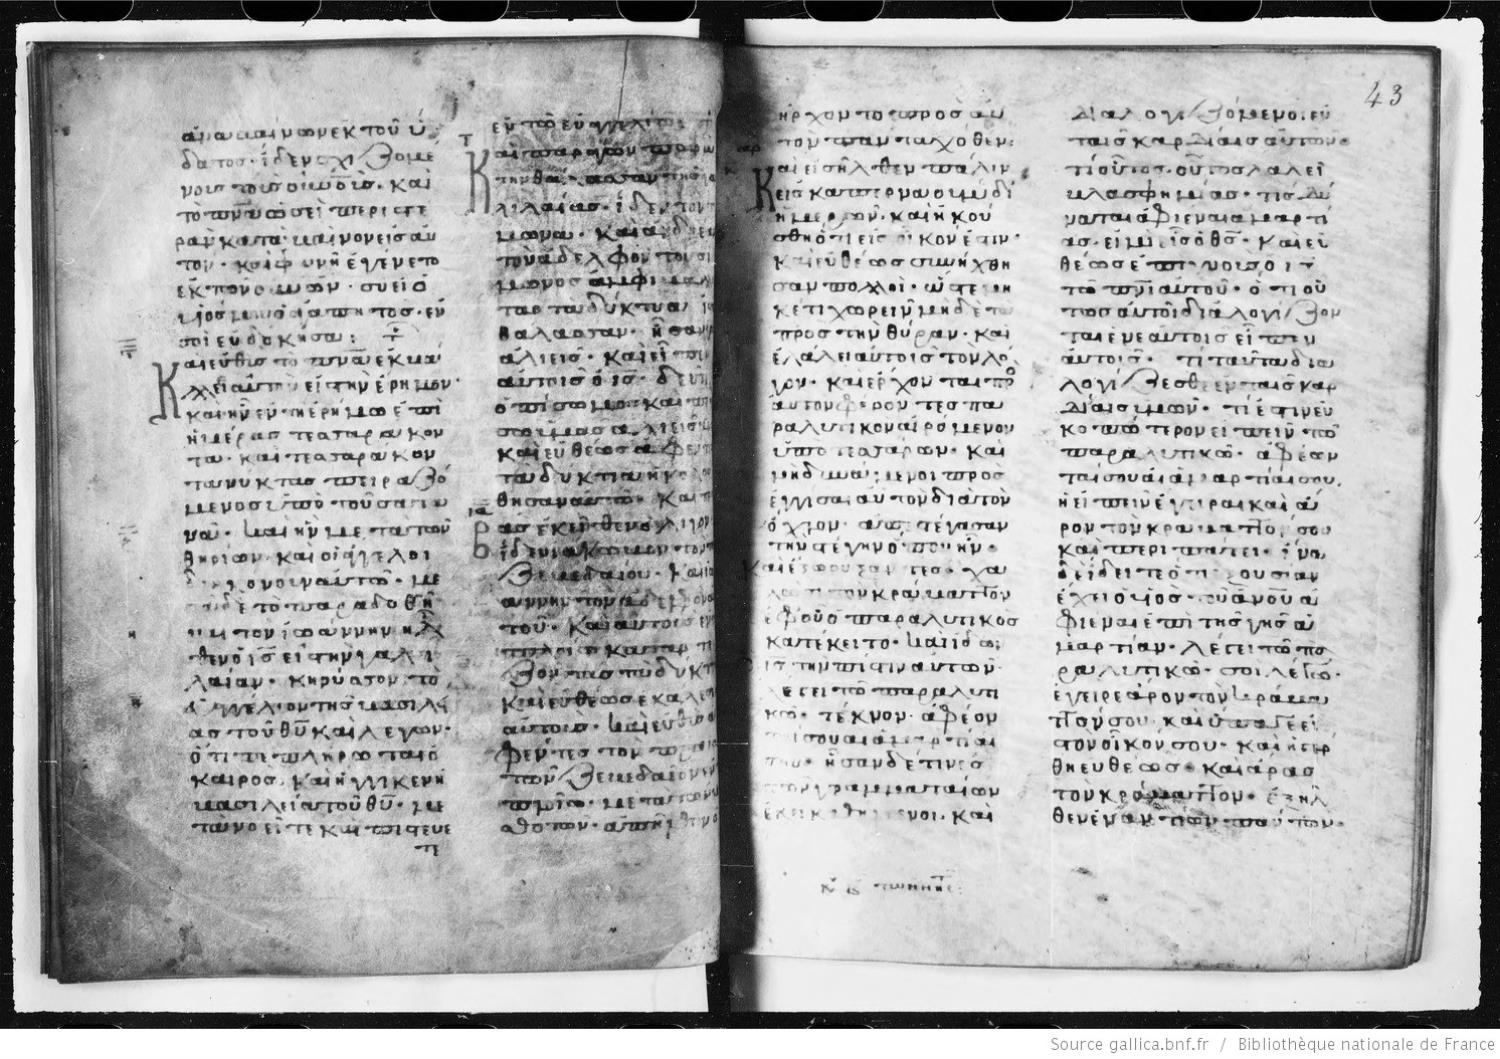 ἀναβαίνων ἐκ τοῦ ὕ
δατος· ἴδεν σχιζομέ
νους τοὺς οὐνοὺς· καὶ
τὸ πνα ὡσεὶ περιστε
ρὰν καταβαῖνον εἰς αὐ
τόν· καὶ φωνὴ ἐγένετο
ἐκ τῶν οὐνῶν· σὺ εἶ ὁ
υἱός μου ὁ ἀγαπητός· ἐν
σοὶ εὐδόκησα:
Καὶ εὐθὺς τὸ πνα ἐκβά
λλει αὐτὸν εἰς τὴν ἔρημον·
καὶ ἦν ἐν τῇ ἐρήμω ἐπὶ
ἡμέρας τεσσαράκον
τα· καὶ τεσσαράκον
τα νύκτας πειραζό
μενος ὑπὸ τοῦ σατα
νᾶ· καὶ ἦν μετὰ τῶν
θηρίων· καὶ οἱ ἄγγελοι
διηκόνουν αὐτῶ· με
τὰ δὲ τὸ παραδοθῆ
ναι τὸν ἰωάννην ἦλ
θεν ὁ ις εἰς τὴν γαλι
λαίαν· κηρύσσων τὸ
εὐαγγέλιον τῆς βασιλεί
ας τοῦ θυ καὶ λέγων·
ὅτι πεπλήρωται ὁ
καιρὸς· καὶ ἤγγικεν ἡ
βασιλεία τοῦ θυ· με
τανοεῖτε καὶ πιστεύε
τε
ἐν τῶ εὐαγγελίω·
Καὶ παράγων παρὰ
τὴν θάλασσαν τῆς γα
λιλαίας· ἴδεν τὸν
σίμωνα· καὶ ἀνδρέαν
τὸν ἀδελφὸν τοῦ σί
μωνος ἀμφιβάλλον
τας τὰ δίκτυα
θάλασσαν· ἦσαν
ἁλιεῖς· καὶ εἶπεν
αὐτοῖς ὁ ις· δεῦτε
ὀπίσω μου καὶ
ποιήσω ὑμᾶς ἁλιεῖς
καὶ εὐθέως ἀφέντες
τὰ δίκτυα ἠκολού
θησαν αὐτῶ· Καὶ προ
βὰς ἐκεῖθεν ὀλίγον
ἴδεν ἰάκωβον τὸν
ζεβεδαίου· καὶ ἰω
άννην τὸν ἀδελφὸν
τοῦ· καὶ αὐτοὺς ἐν
πλοίω καταρτί
ζοντας τὰ δίκτυα
καὶ εὐθέως ἐκάλεσεν
αὐτούς· καὶ εὐθέως
φέντες τὸν πατέρα
τῶν ζεβεδαῖον ἐν
πλοίω· μετὰ τῶν μισ
θωτῶν· ἀπῆλθον
43
ἤρχοντο πρὸς αὐ
τὸν πανταχόθεν:
Καὶ εἰσῆλθεν πάλιν
εἰς καπερναοὺμ δι
ἡμερῶν· καὶ ἠκού
σθη ὅτι εἰς οἶκόν ἐστιν·
καὶ εὐθέως συνήχθη
σαν πολλοὶ· ὥστε μη
κέτι χωρεῖν μηδὲ τὰ
πρὸς τὴν θύραν· καὶ
ἐλάλει αὐτοῖς τὸν λό
γον· καὶ ἔρχονται πρὸς
αὐτὸν φέροντες πα
ραλυτικὸν αἰρόμενον
ὑπὸ τεσσάρων· καὶ
μὴ δυνάμενοι προσ
εγγίσαι αὐτὸν διὰ τὸν
ὄχλον· ἀπεστέγασαν
τὴν στέγην ὅπου ἦν·
Καὶ ἐξορύξαντες· χα
λῶσι τὸν κράβαττον
ἐφ οὗ ὁ παραλυτικὸς
κατέκειτο· καὶ ἰδὼν
ὁ ις τὴν πίστιν αὐτῶν·
λέγει τῶ παραλυτι
κῶ· τέκνον· ἀφέων
ταί σου αἱ ἁμαρτίαι
σου· ἦσαν δέ τινες
τῶν γραμματαίων
ἐκεῖ καθήμενοι· καὶ
διαλογιζόμενοι ἐν
ταῖς καρδίαις αὐτῶν·
τί οὗτος οὕτως λαλεῖ
βλασφημίας· τίς δύ
ναται ἀφιέναι ἁμαρτί
ας· εἰ μὴ εἷς ὁ θς· καὶ εὐ
θέως ἐπιγνοὺς ὁ ις
τῶ πνι αὐτοῦ· ὅτι οὕ
τως αὐτοὶ διαλογίζον
ται ἐν ἑαυτοῖς εἶπεν
αὐτοῖς· τί ταῦτα δια
λογίζεσθε ἐν ταῖς καρ
δίαις ὑμῶν· τί ἐστιν εὐ
κοπώτερον εἰπεῖν τῶ
παραλυτικῶ· ἀφέων
ταί σου αἱ ἁμαρτίαι σου,
ἢ εἰπεῖν ἔγειραι καὶ ἆ
ρον τὸν κράβαττόν σου
καὶ περιπάτει· ἵνα
δὲ ἴδειτε ὅτι ἐξουσίαν
ἔχει ὁ υἱὸς τοῦ ἀνου ἀ
φιέναι ἐπὶ τῆς γῆς ἁ
μαρτίαν· λέγει τῶ πα
ραλυτικῶ· σοὶ λέγω·
ἔγειρε ἆρον τὸν κράβα
ττόν σου· καὶ ὕπαγε εἰς
τὸν οἶκόν σου· καὶ ἠγέρ
θη εὐθέως· καὶ ἄρας
τὸν κράβαττον· ἐξῆλ
θεν ἐναντίον πάντων·
Source gallica.bnf.fr / Bibliothèque nationale de France